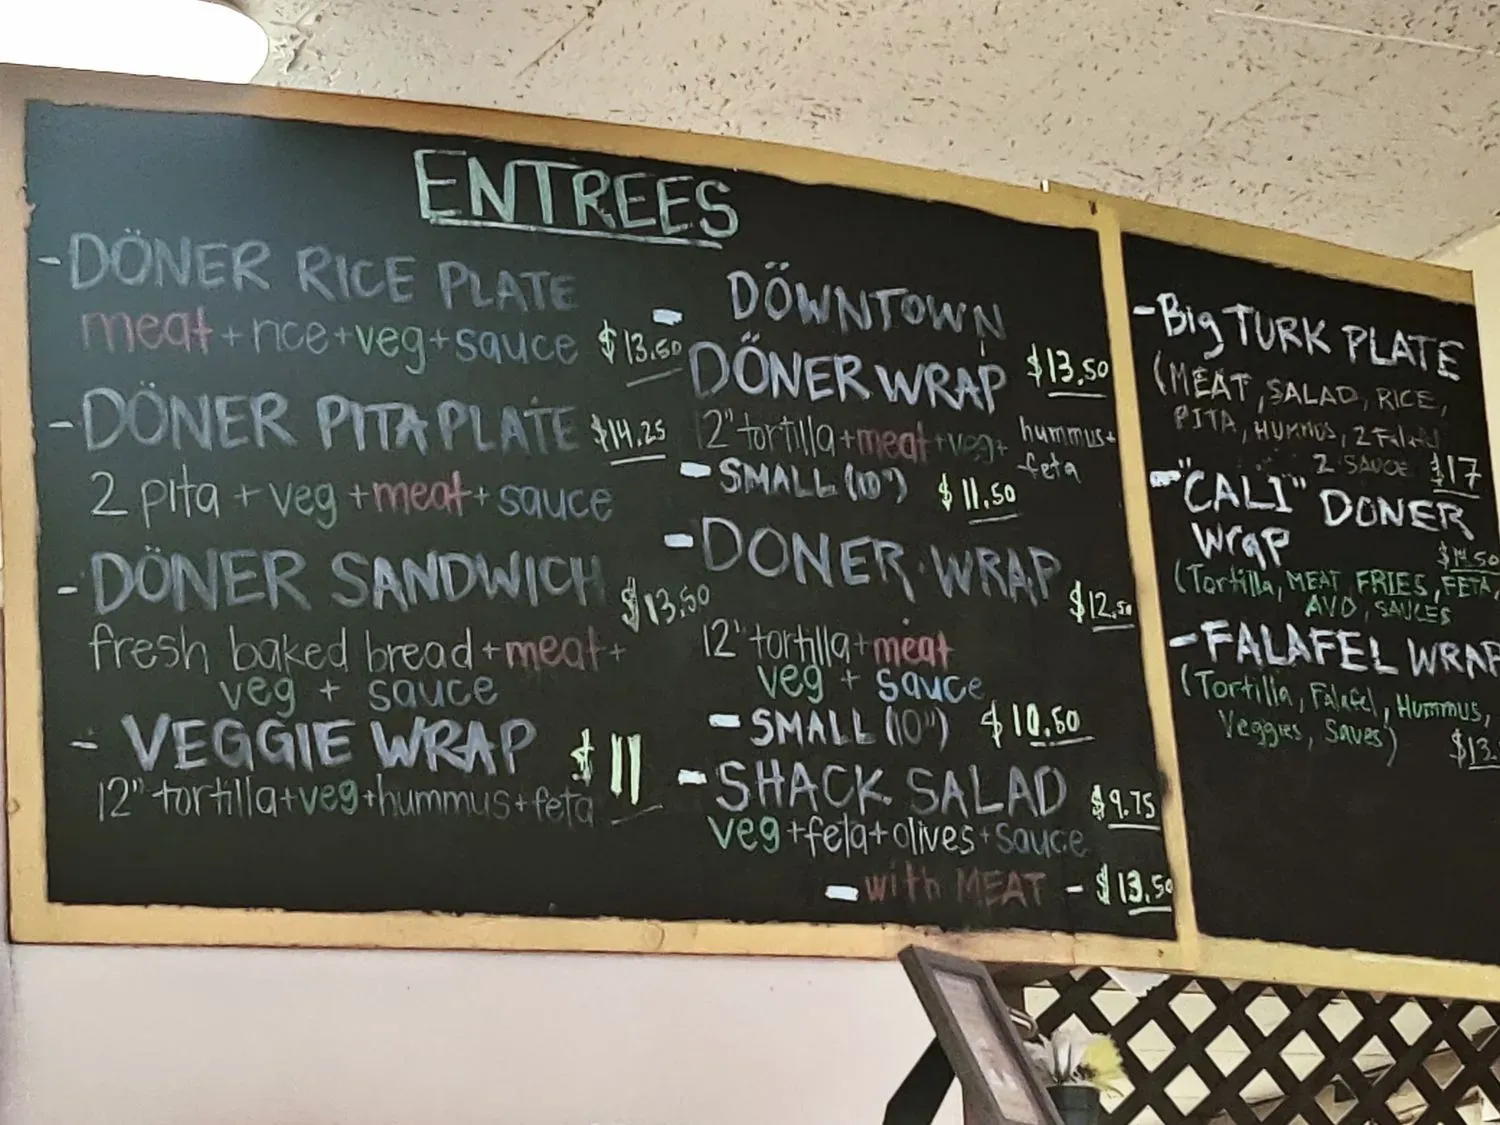 ENTREES
- DÖNER RICE PLATE
meat + rice + veg + sauce $13.50
- DÖNER PITA PLATE $14.25
2 pita + veg + meat + sauce
- DÖNER SANDWICH $13.50
fresh baked bread + meat +
veg + sauce
- VEGGIE WRAP $11
12" tortilla + veg + hummus + feta
- DÖWNTOWN
DÖNER WRAP $13.50
12" tortilla + meat + veg + hummus +
feta
- SMALL (10") $11.50
- DONER WRAP $12.50
12" tortilla + meat
veg + sauce
- SMALL (10") $10.50
- SHACK SALAD $9.75
veg + feta + olives + sauce
- with MEAT - $13.50
- Big TURK PLATE
(MEAT, SALAD, RICE,
PITA, HUMMUS, 2 Falafel
2 SAUCE $17
- "CALI" DONER
Wrap $14.50
(Tortilla, MEAT FRIES, FETA,
AVO, SAUCES
- FALAFEL WRAP
(Tortilla, Falafel, Hummus,
Veggies, Saues)
$13.